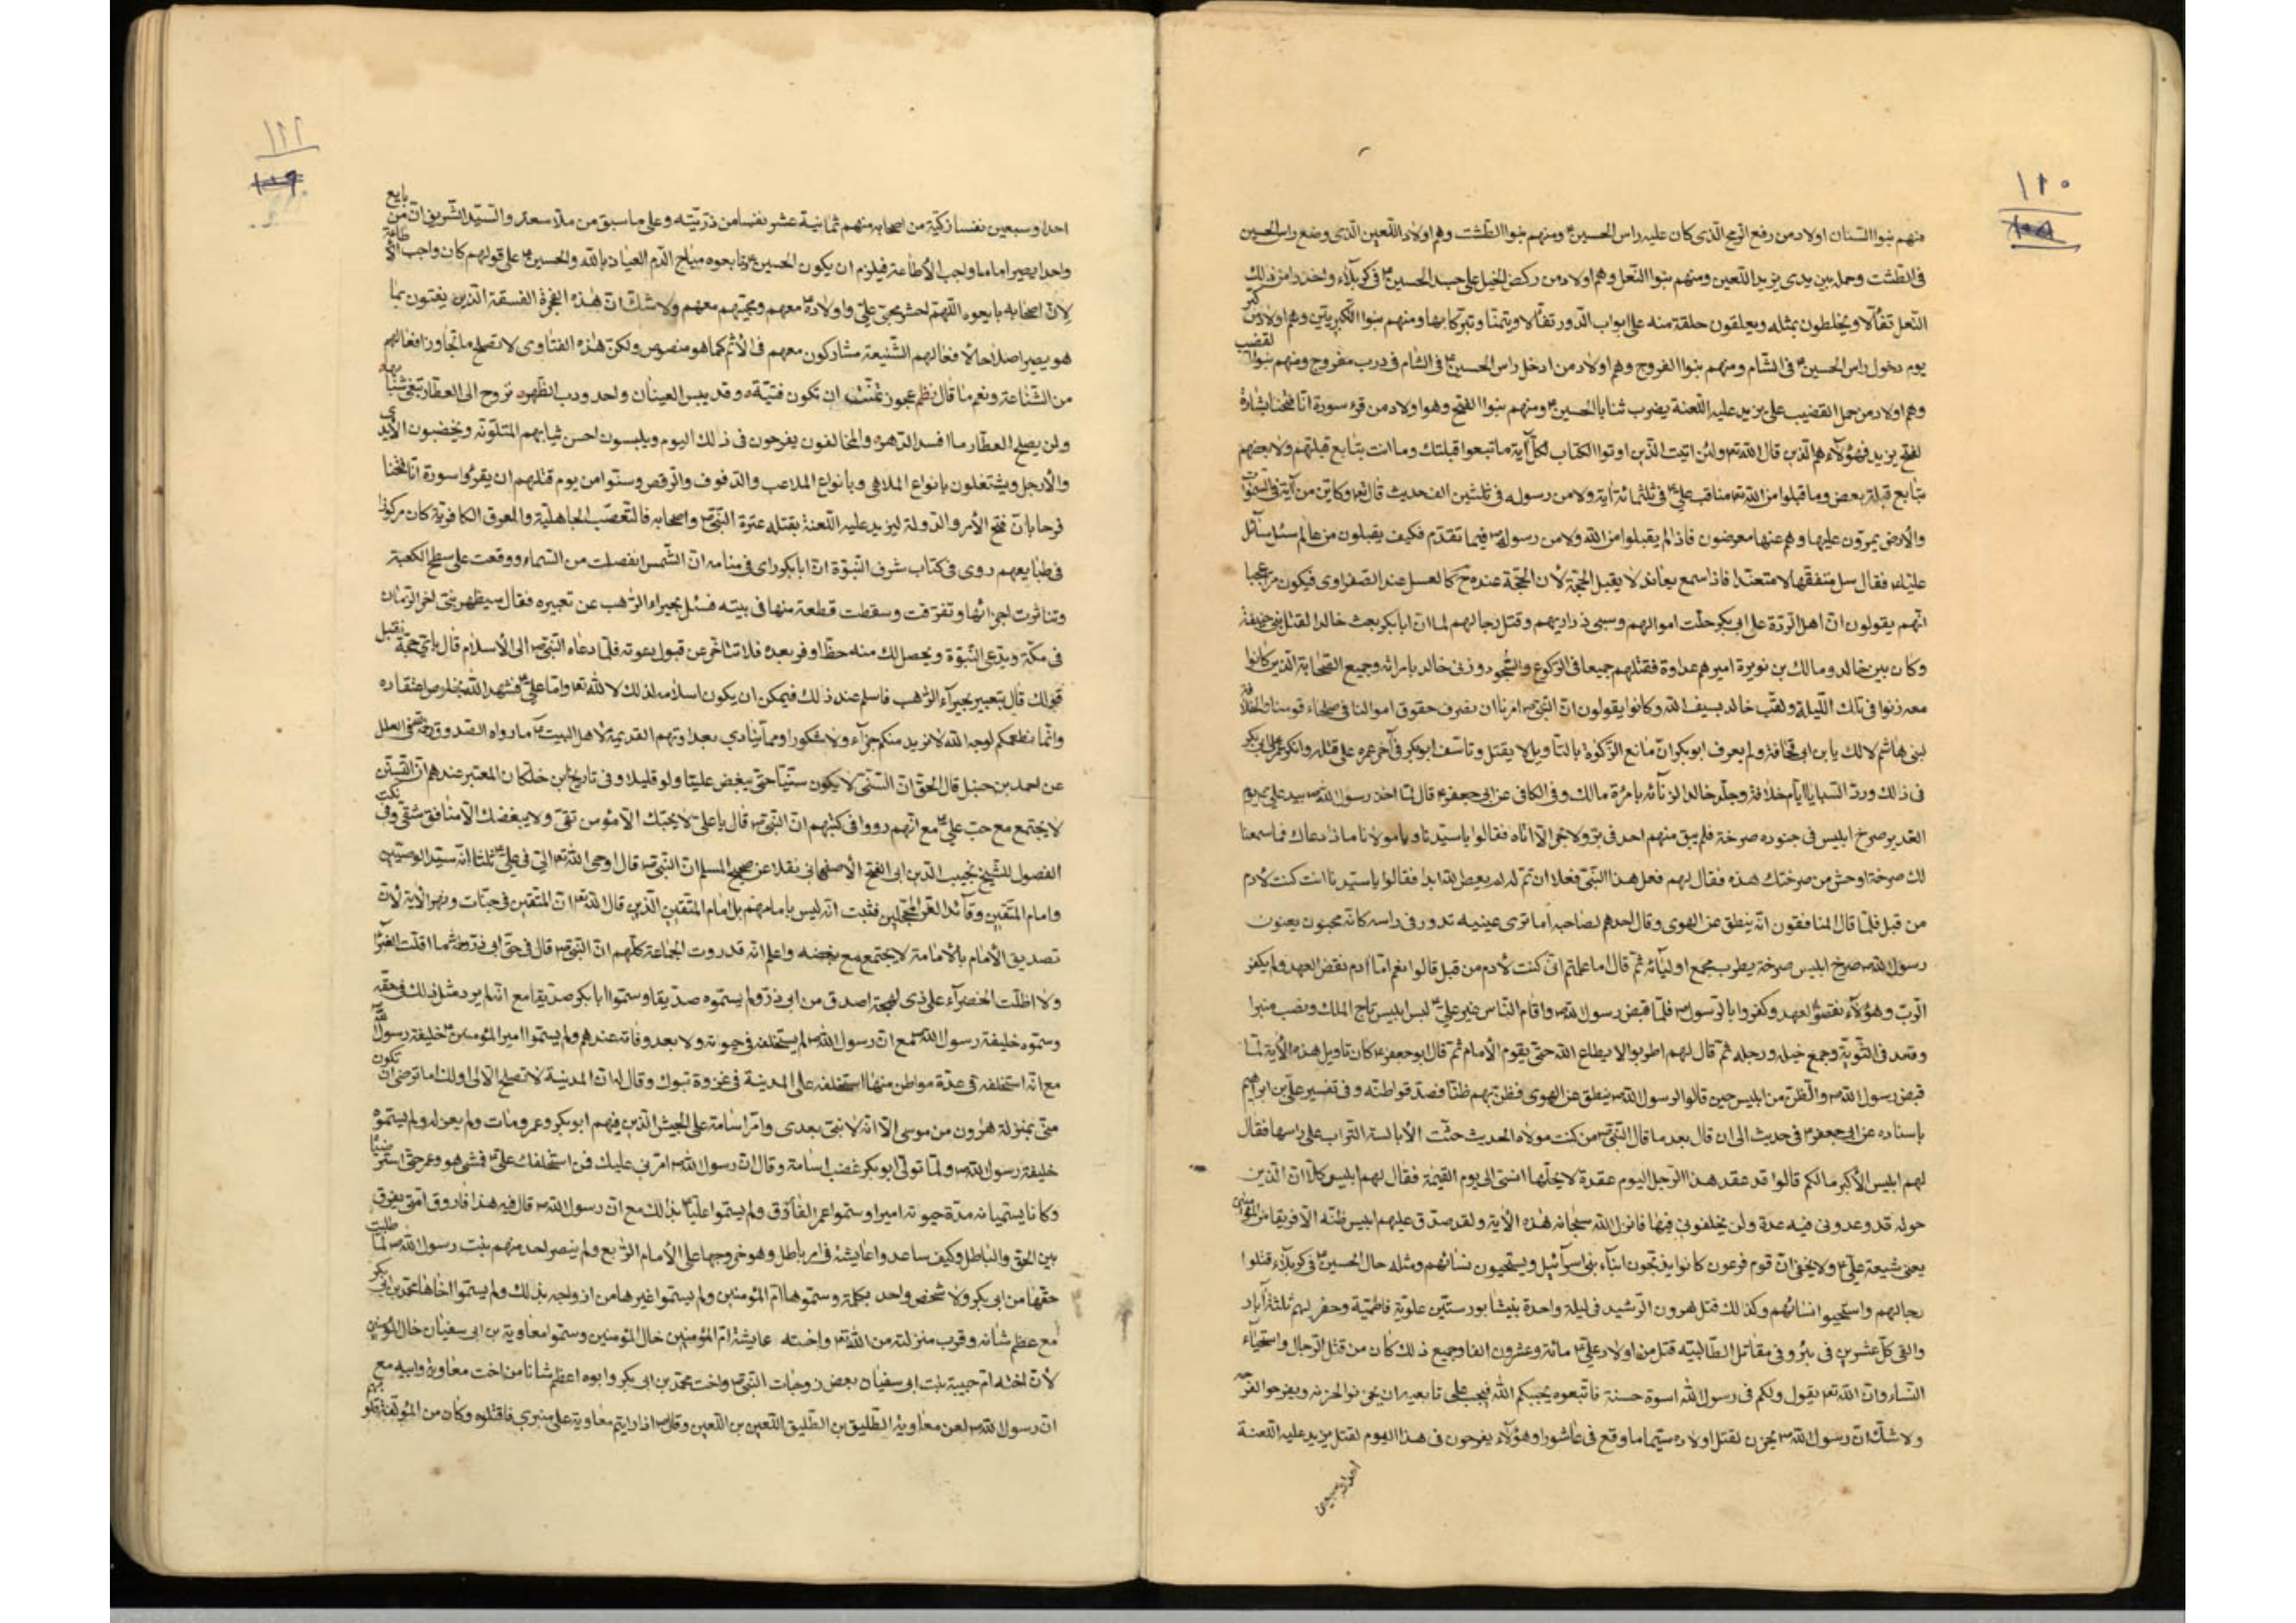 ١١٠
١٠٨
منهم بنوا السنان اولاد من رفع الرمح الذى كان عليه راس الحسين ومنهم بنوا الطشت وهم اولاد اللعين الذى وضع راس الحسين
فى الطشت وحمله بين يدى يزيد اللعين ومنهم بنوا النعل وهم اولاد من ركض الخيل على جسد الحسين فى كربلاء واخذ
النعل تفألا ويخلطون بمثله ويعلقون حلقة منه على ابواب الدور تفألا وتيمنا وتبركا بها ومنهم بنوا التكبريتين وهم اولاد من كبر
يوم دخول راس الحسين فى الشام ومنهم بنوا الفروج وهم اولاد من ادخل راس الحسين فى الشام فى درب مفروج ومنهم بنوا القضيب
وهم اولاد من حمل القضيب على يزيد عليه اللعنة يضرب ثنايا الحسين ومنهم بنوا الفتح وهو اولاد من قرء سورة انا فتحنا بشارة
لفتح يزيد فهؤلاء هم الذين قال الله ولئن اتيت الذين اوتوا الكتاب بكل آية ما تبعوا قبلتك وما انت بتابع قبلتهم ولا بعضهم
بتابع قبلة بعض وما قبلوا من الله مناقب على فى ثلثمائة آية ولا من رسوله فى ثلثين الف حديث قال وكاين من آية فى السموات
والارض يمرون عليها وهم عنها معرضون فاذا لم يقبلوا من الله ولا من رسوله فيما تقدم فكيف يقبلون من عالم سئل سائل
عليا فقال سل متفقها لا متعنتا فاذا سمع يعاند لا يقبل الحجة لان الحجة عنده ح كالعسل عند الصفراوى فيكون
انهم يقولون ان اهل الردة على ابى بكر حلت اموالهم وسبى ذراريهم وقتل رجالهم لما ان ابابكر بعث خالدا لقتل بنى حنيفة
وكان بين خالد ومالك بن نويرة اميرهم عداوة فقتلهم جميعا فى الركوع والسجود وزنى خالد بامراته وجميع الصحابة الذين كانوا
معه زنوا فى تلك الليلة ولقب خالد بسيف الله وكانوا يقولون ان النبى امرنا ان نصرف حقوق اموالنا فى صلحاء قومنا
لبنى هاشم لا لك يا بن ابى قحافة ولم يعرف ابوبكر ان مانع الزكوة بالتاويل لا يقتل وتاسف ابوبكر فى آخر عمره على قتله وانكر عمر على ابى بكر
فى ذلك ورد السبايا ايام خلافته وجلد خالدا لزنائه بامرة مالك وفى الكافى عن ابى جعفر قال لما اخذ رسول الله بيد على يوم
الغدير صرخ ابليس فى جنوده صرخة فلم يبق منهم احد فى بر ولا بحر الا اتاه فقالوا يا سيدنا ويا مولانا ماذا دعاك فما سمعنا
لك صرخة اوحش من صرختك هذه فقال لهم فعل هذا النبى فعلا ان تم له لم يعص الله ابدا فقالوا يا سيدنا انت كنت لادم
من قبل فلما قال المنافقون انه ينطق عن الهوى وقال احدهم لصاحبه اما ترى عينيه تدور فى راسه كانه مجنون يعنون
رسول الله صرخ ابليس صرخة يطرب فجمع اوليائه ثم قال اما علمتم انى كنت لادم من قبل قالوا نعم اما آدم نقض العهد ولم يكفر
الرب وهؤلاء نقضوا العهد وكفروا بالرسول فلما قبض رسول الله واقام الناس غير على لبس ابليس تاج الملك ونصب منبرا
وقعد فى الثوبة وجمع خيله ورجله ثم قال لهم اطربوا لا يطاع الله حتى يقوم الامام ثم قال ابوجعفر كان تاويل هذه الآية لما
قبض رسول الله والظن من ابليس حين قالوا لرسول الله ينطق عن الهوى فظن بهم ظنا فصدقوا ظنه وفى تفسير على بن ابراهيم
باسناده عن ابى جعفر فى حديث الى ان قال بعد ما قال النبى من كنت مولاه الحديث حثت الابالسة التراب على راسها فقال
لهم ابليس الاكبر ما لكم قالوا قد عقد هذا الرجل اليوم عقدة لا يحلها انسى الى يوم القيمة فقال لهم ابليس كلا ان الذين
حوله قد وعدونى فيه عدة ولن يخلفونى فيها فانزل الله سبحانه هذه الآية ولقد صدق عليهم ابليس ظنه الا فريقا من المؤمنين
يعنى شيعة على ولا يخفى ان قوم فرعون كانوا يذبحون ابناء بنى اسرائيل ويستحيون نسائهم ومثله حال الحسين فى كربلاء قتلوا
رجالهم واستحيوا نسائهم وكذلك قتل هرون الرشيد فى ليلة واحدة بنيشابور ستين علوية فاطمية وحفر لهم ثلثة آباد
والقى كل عشرين فى بئر وفى مقاتل الطالبية قتل من اولاد على مائة وعشرون الفا وجميع ذلك كان من قتل الرجال واستحياء
النساء وان الله يقول ولكم فى رسول الله اسوة حسنة فاتبعوه يحببكم الله فيجب على تابعيه ان يحزنوا لحزنه ويفرحوا لفرحه
ولا شك ان رسول الله يحزن لقتل اولاده سيما ما وقع فى عاشورا وهؤلاء يفرحون فى هذا اليوم لقتل يزيد عليه اللعنة
احدا وسبعين
١١١
١٠٩
احدا وسبعين نفسا زكية من اصحابه منهم ثمانية عشر نفسا من ذريته وعلى ما سبق من ملا سعد والسيد الشريف ان من بايع
واحدا يصير اماما واجب الاطاعة فيلزم ان يكون الحسين وتابعوه مباح الدم العياذ بالله والحسين على قولهم كان واجب الاطاعة
لان اصحابه بايعوه اللهم احشر محبى على واولاده معهم ومحبيهم معهم ولا شك ان هذه الفجرة الفسقة الذين يفتون بما
هو يصير اصلاحا لافعالهم الشنيعة مشاركون معهم فى الاثم كما هو منصوص ولكن هذه الفتاوى لا تصلح ما تجاوز افعالهم
من الشناعة ونعم ما قال نظم عجوز تمنت ان تكون فتية وقد يبس العينان واحدودب الظهر تروح الى العطار تبغى شبابها
ولن يصلح العطار ما افسد الدهر والمخالفون يفرحون فى ذلك اليوم ويلبسون احسن ثيابهم المتلونة ويخضبون الايدى
والارجل ويشتغلون بانواع الملاهى وبانواع الملاعب والدفوف والرقص وسنوا من يوم قتلهم ان يقرؤا سورة انا فتحنا
فرحا بان فتح الامر والدولة ليزيد عليه اللعنة بقتله عترة النبى واصحابه فالتعصب الجاهلية والعرق الكافرية كان مركوزا
فى طبايعهم روى فى كتاب شرف النبوة ان ابابكر راى فى منامه ان الشمس انفصلت من السماء ووقعت على سطح الكعبة
وتناثرت اجزائها وتفرقت وسقطت قطعة منها فى بيته فسئل بحيراء الراهب عن تعبيره فقال سيظهر نبى آخر الزمان
فى مكة ويدعى النبوة ويحصل لك منه حظا وفر بعده فلا تتاخر عن قبول دعوته فلما دعاه النبى الى الاسلام قال باى حجة نقبل
قولك قال بتعبير بحيراء الراهب فاسلم عند ذلك فيمكن ان يكون اسلامه لذلك لا لله واما على فشهد الله بخلوص اعتقاده
وانما نطعمكم لوجه الله لا نريد منكم جزاء ولا شكورا ومما ينادى بعداوتهم القديمة لاهل البيت ما رواه الصدوق فى العلل
عن احمد بن حنبل قال الحق ان السنى لا يكون سنيا حتى يبغض عليا ولو قليلا وفى تاريخ ابن خلكان المعتبر عندهم ان التسنن
لا يجتمع مع حب على مع انهم رووا فى كتبهم ان النبى قال يا على لا يحبك الا مؤمن تقى ولا يبغضك الا منافق شقى وفى نكت
الفصول للشيخ نجيب الدين ابى الفتح الاصفهانى نقلا عن صحيح المسلم ان النبى قال اوحى الله الى فى على ثلثا انه سيد الوصيين
وامام المتقين وقائد الغر المحجلين فثبت انه ليس بامامهم بل امام المتقين الذين قال الله ان المتقين فى جنات ونهر الآية لان
تصديق الامام بالامامة لا يجتمع مع بغضه واعلم انه قد روت الجماعة كلهم ان النبى قال فى حق ابى ذر ما اقلت الغبراء
ولا اظلت الخضراء على ذى لهجة اصدق من ابى ذر ولم يسموه صديقا وسموا ابابكر صديقا مع انه لم يرد مثل ذلك فى حقه
وسموه خليفة رسول الله مع ان رسول الله لم يستخلفه فى حيوته ولا بعد وفاته عندهم ولم يسموا امير المؤمنين خليفة رسول الله
مع انه استخلفه فى عدة مواطن منها استخلفه على المدينة فى غزوة تبوك وقال له ان المدينة لا تصلح الا لى او لك اما ترضى ان تكون
منى بمنزلة هرون من موسى الا انه لا نبى بعدى وامر اسامة على الجيش الذين فيهم ابوبكر وعمر ومات ولم يعزله ولم يسموه
خليفة رسول الله ولما تولى ابوبكر غضب اسامة وقال ان رسول الله امرنى عليك فمن استخلفك على فمشى هو وعمر حتى استرضياه
وكانا يسميانه مدة حيوته اميرا وسموا عمر الفاروق ولم يسموا عليا بذلك مع ان رسول الله قال فيه هذا فاروق امتى يفرق
بين الحق والباطل وكيف ساعدوا عايشة فى امر باطل وهو خروجها على الامام الرابع ولم ينصر احد منهم بنت رسول الله لما طلبت
حقها من ابى بكر ولا شخص واحد بكلمة وسموها ام المؤمنين ولم يسموا غيرها من ازواجه بذلك ولم يسموا اخاها محمد بن ابى بكر
مع عظم شانه وقرب منزلته من الله واخته عايشة ام المؤمنين خال المؤمنين وسموا معاوية بن ابى سفيان خال المؤمنين
لان اخته ام حبيبة بنت ابى سفيان بعض زوجات النبى واخت محمد بن ابى بكر وابوه اعظم شانا من اخت معاوية وابيه مع
ان رسول الله لعن معاوية الطليق بن الطليق اللعين بن اللعين وقال اذا رايتم معاوية على منبرى فاقتلوه وكان من المؤلفة قلوبهم